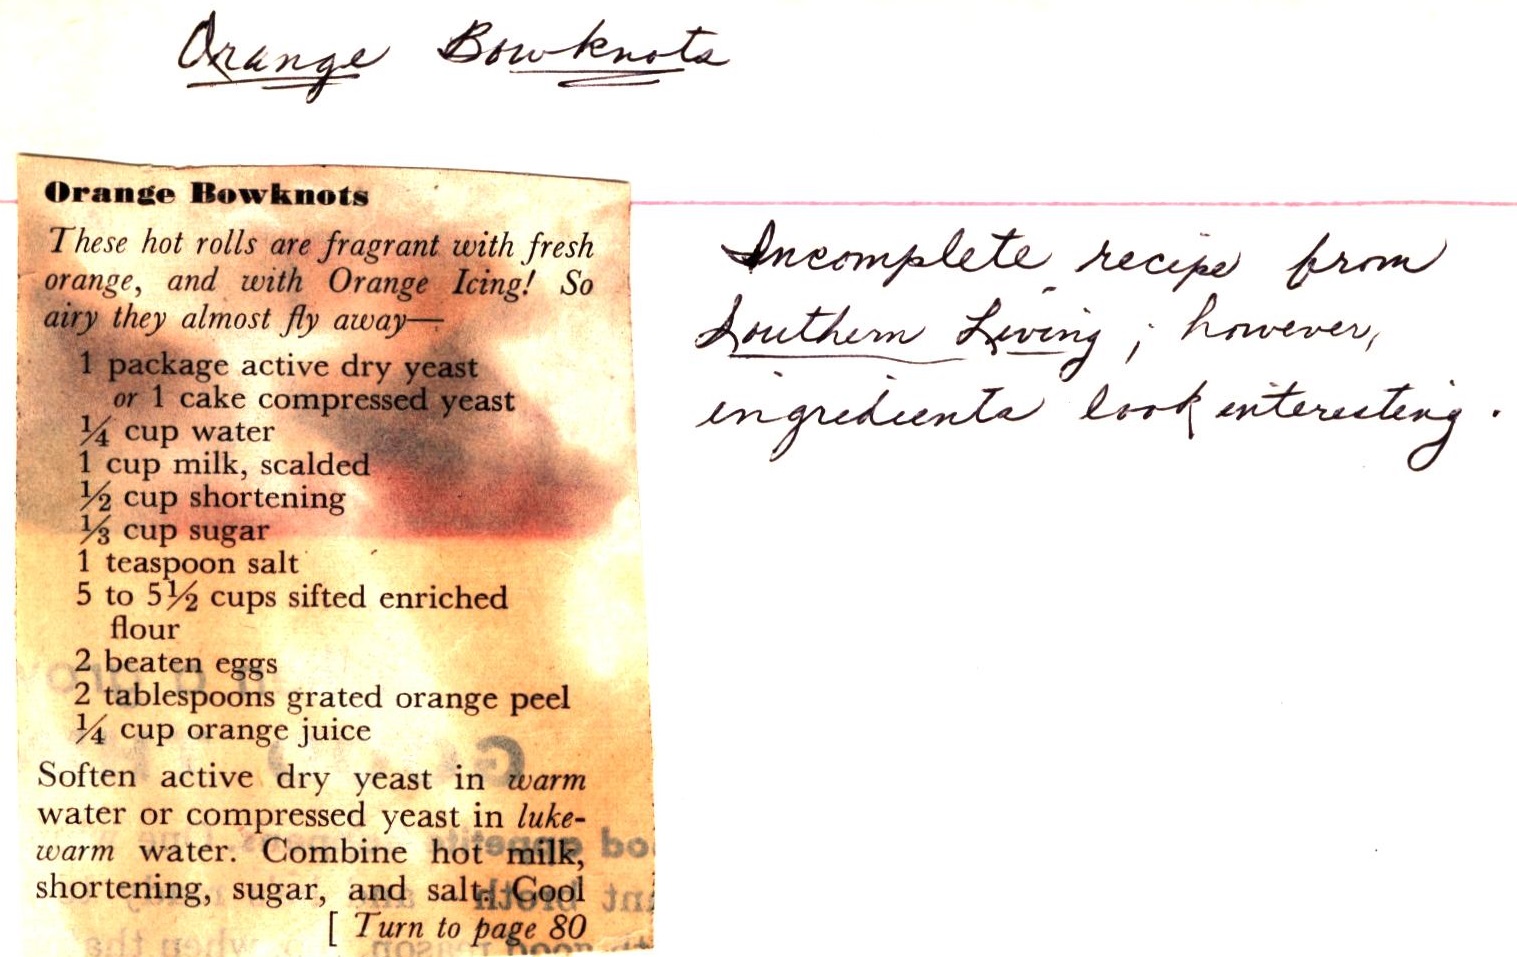 Orange Bowknots
Orange Bowknots
These hot rolls are fragrant with fresh
orange, and with Orange Icing! So
airy they almost fly away—
1 package active dry yeast
or 1 cake compressed yeast
¼ cup water
1 cup milk, scalded
½ cup shortening
⅓ cup sugar
1 teaspoon salt
5 to 5½ cups sifted enriched
flour
2 beaten eggs
2 tablespoons grated orange peel
¼ cup orange juice
Soften active dry yeast in warm
water or compressed yeast in luke-
warm water. Combine hot milk,
shortening, sugar, and salt. Cool
[ Turn to page 80
Incomplete recipe from
Southern Living; however,
ingredients look interesting.